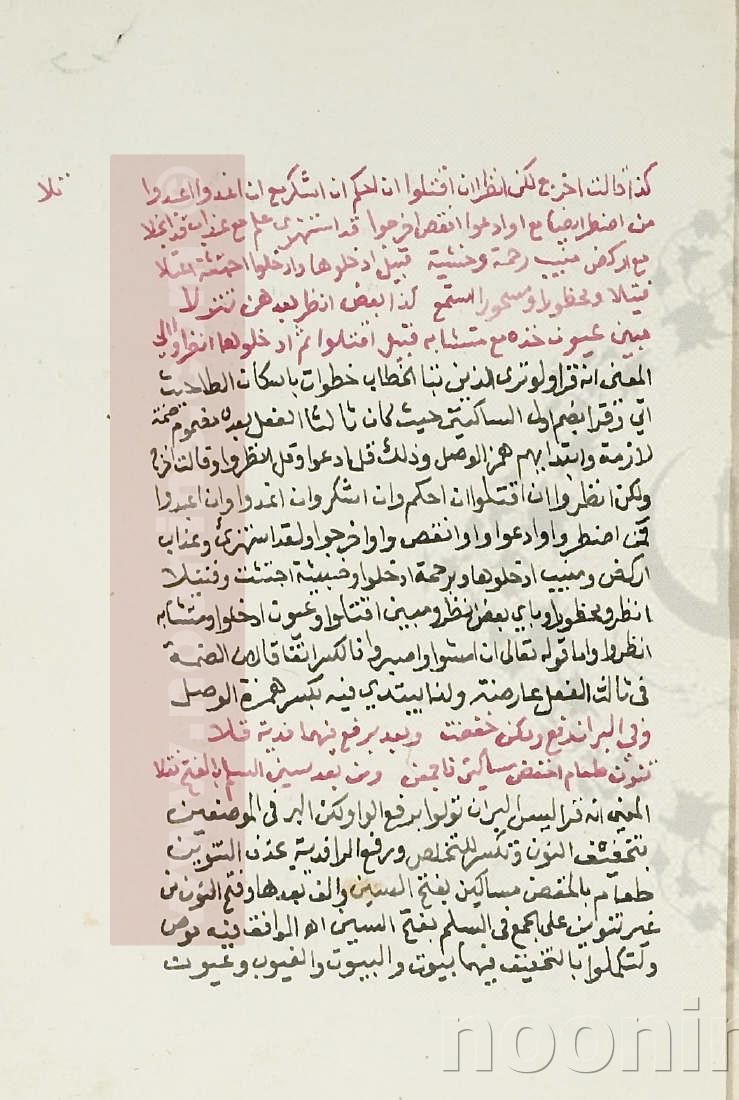 كذا قالت اخرج لكن انظر ان اقتلوا ان احكم ان اشكر مع ان اغدوا اعبدوا
تلا
من اضطر ايضا مع او ادعوا انقص اخرجوا قد استهزئ علم مع عذاب قد انجلا
مع اركض منيب رحمة وخبيثة قبيل ادخلوها وادخلوا اجتثت اعتلا
فتيلا ومحظورا ومسحورا استمع كذا بعض انظر بعد هن تنزلا
مبين عيون خذه مع متشابه قبيل اقتلوا ثم ادخلوها انظروا الى
المعنى انه قرا ولو ترى الذين بتا الخطاب خطوات باسكان الطا حيث
اتى وقرا بضم اول الساكنين حيث كان ثالث الفعل بعده مضموم ضمة
لازمة وابتدا بهم همز الوصل وذلك قل ادعوا وقل انظروا وقالت اخرج
ولكن انظر وان اقتلوا ان احكم وان اشكر وان اغدوا وان اعبدوا
فمن اضطر واو ادعوا واو انقص واو اخرجوا ولقد استهزئ وعذاب
اركض ومنيب ادخلوها وبرحمة ادخلوا وخبيثة اجتثت وفتيلا
انظر ومحظورا وباي بعض انظر ومبين اقتلوا وعيون ادخلوا ومتشابه
انظروا واما قوله تعالى ان امشوا واصبروا فالكسر اتفاقا لان الضمة
فى ثالث الفعل عارضة ولذا يبتدي فيه بكسر همزة الوصل
وفي البر ان رفع ولكن خففت وبعد برفع فيهما فدية فلا
تنون طعام اخفض مساكين ناجمعن ومن بعد سين السلم بالفتح نقلا
المعني انه قرا ليس البر ان تولوا برفع الرا ولكن البر فى الموضعين
بتخفيف النون وتكسر للتخلص وبرفع الرا فدية بحذف التنوين
طعام بالخفض مساكين بفتح السين والف بعدها وفتح النون من
غير تنوين على الجمع فى السلم بفتح السين اه الموافق فيه موص
ولتكملوا بالتخفيف فيهما بيوت والبيوت والغيوب وعيون